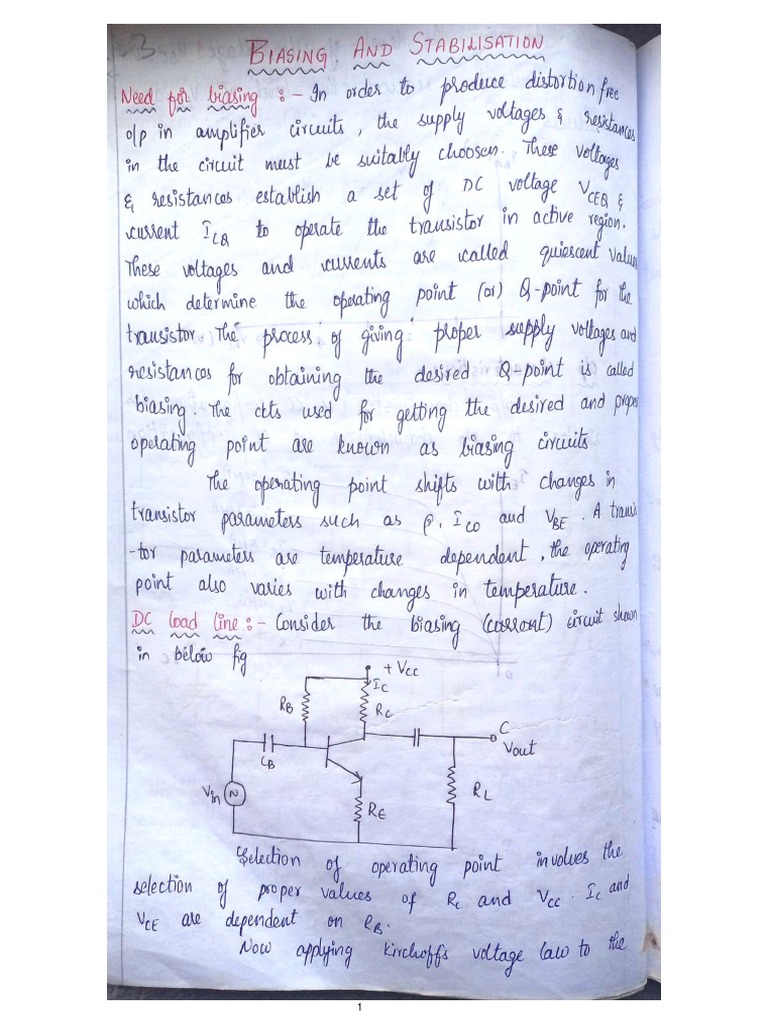 3
BIASING AND STABILISATION
Need for biasing :- In order to produce distortion free
o/p in amplifier circuits, the supply voltages & resistances
in the circuit must be suitably choosen. These voltages
& resistances establish a set of DC voltage VCEQ &
current ICQ to operate the transistor in active region.
These voltages and currents are called quiescent values
which determine the operating point (or) Q-point for the
transistor. The process of giving proper supply voltages and
resistances for obtaining the desired Q-point is called
biasing. The ckts used for getting the desired and proper
operating point are known as biasing circuits
The operating point shifts with changes in
transistor parameters such as β, ICO and VBE. A transis
-tor parameters are temperature dependent, the operating
point also varies with changes in temperature.
DC load line :- Consider the biasing (current) circuit shown
in below fig
+ VCC
IC
RB
RC
C
Vout
CB
Vin
N
RE
RL
Selection of operating point involves the
selection of proper values of RC and VCC. IC and
VCE are dependent on RB.
Now applying Kirchoff's voltage law to the
1